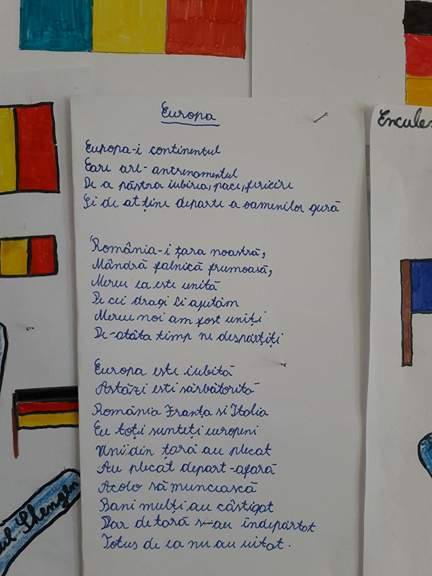 Europa
Europa-i continentul
Care are-antrenamentul
De a păstra iubirea, pace, fericire
Și de at ține departe a oamenilor gură
România-i țara noastră,
Mândră falnică frumoasă,
Mereu ea este unită
Pe cei dragi îi ajutăm
Mereu noi am fost uniți
De-atâta timp ne despărțiți
Europa este iubită
Astăzi esti sărbătorită
România Franța si Italia
Cu toți sunteți europeni
Unii din țară au plecat
Au plecat depart-afară
Acolo să muncească
Bani mulți au câstigat
Dar de tară s-au îndepărtat
Totus de ea nu au uitat.
Encules
ul Schengen